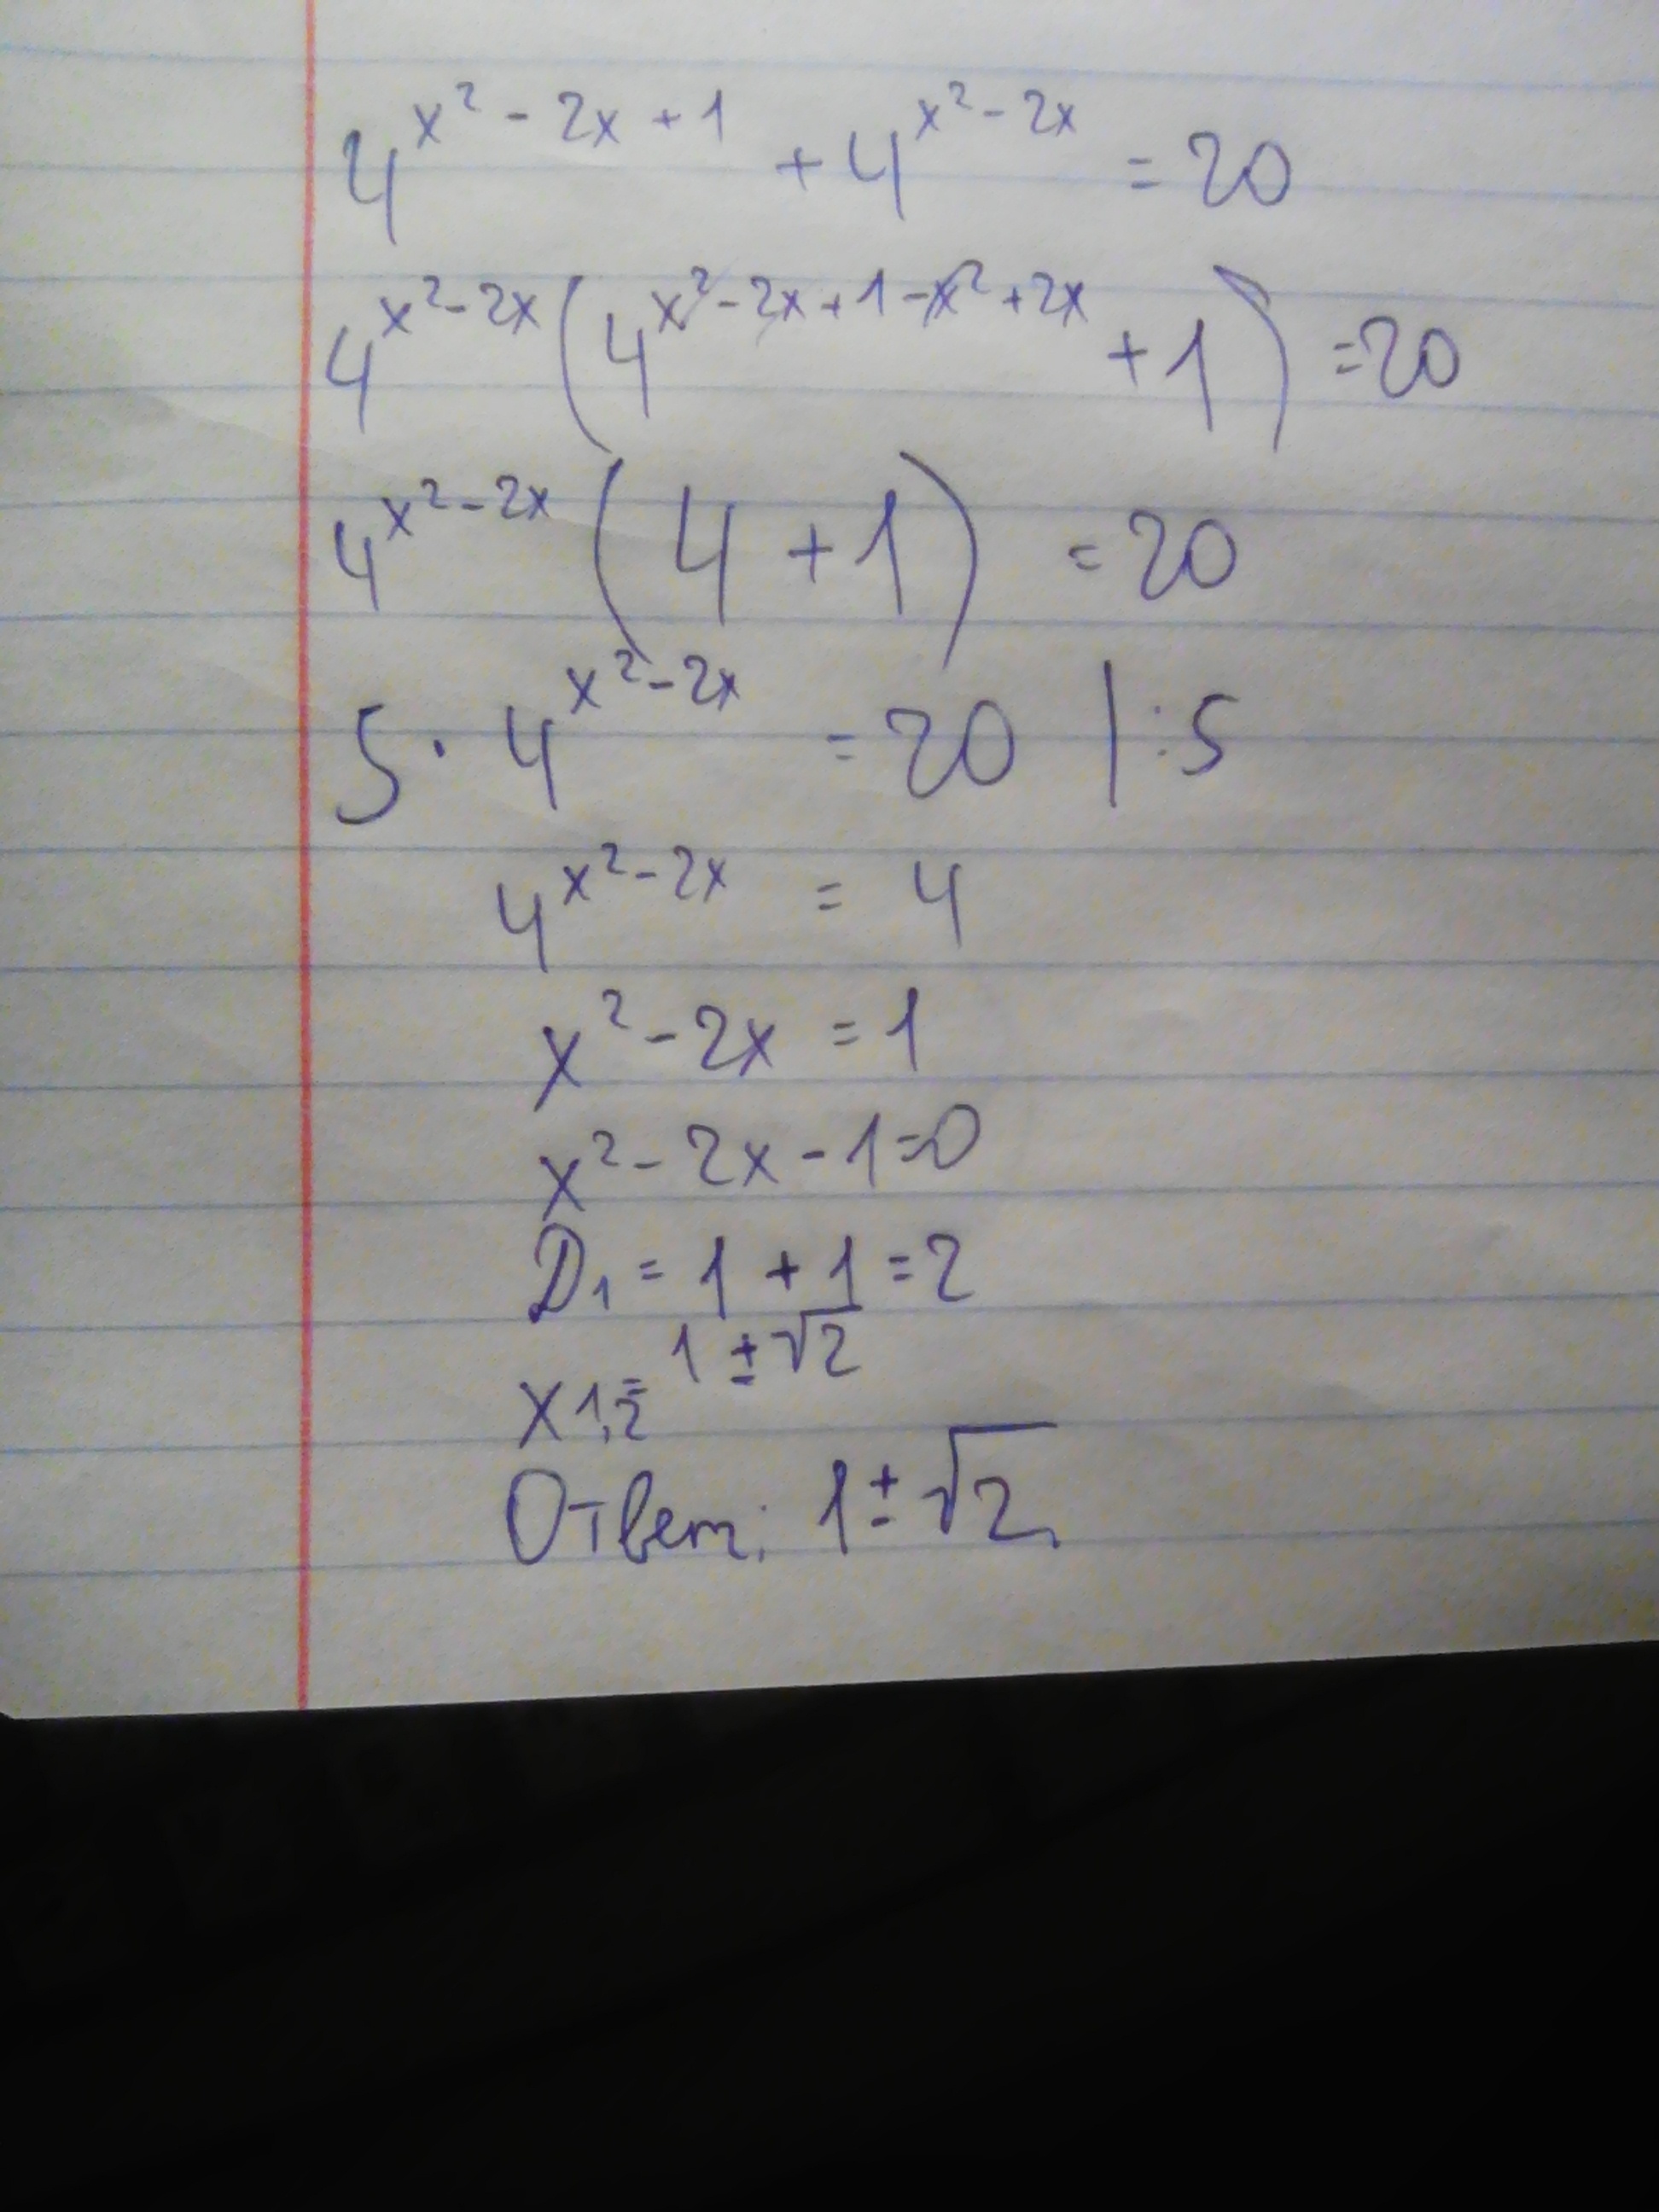 4^(x²-2x+1) + 4^(x²-2x) = 20
4^(x²-2x) (4^(x²-2x+1-x²+2x) + 1) = 20
4^(x²-2x) (4 + 1) = 20
5 · 4^(x²-2x) = 20 | :5
4^(x²-2x) = 4
x² - 2x = 1
x² - 2x - 1 = 0
D₁ = 1 + 1 = 2
x₁,₂ = 1 ± √2
Ответ: 1 ± √2.